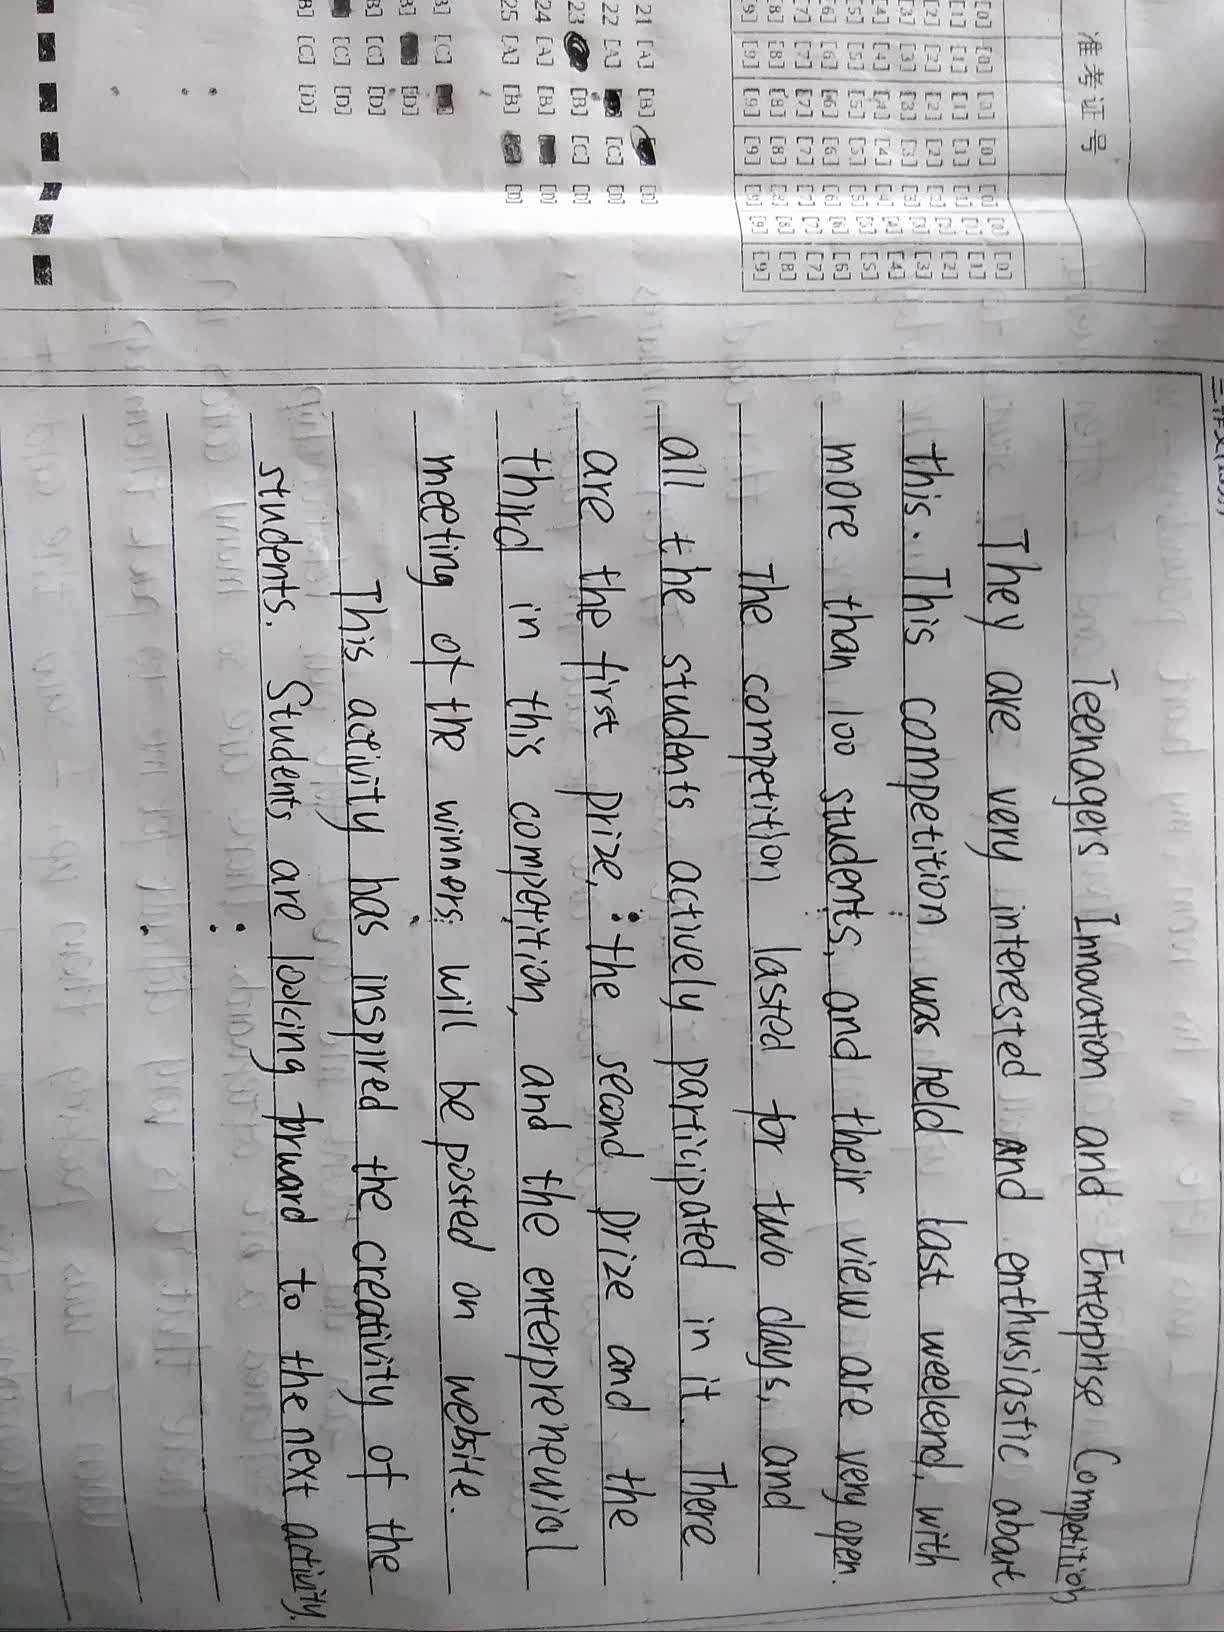 准考证号
[0] [0] [0] [0] [0] [0] [0]
[1] [1] [1] [1] [1] [1] [1]
[2] [2] [2] [2] [2] [2] [2]
[3] [3] [3] [3] [3] [3] [3]
[4] [4] [4] [4] [4] [4] [4]
[5] [5] [5] [5] [5] [5] [5]
[6] [6] [6] [6] [6] [6] [6]
[7] [7] [7] [7] [7] [7] [7]
[8] [8] [8] [8] [8] [8] [8]
[9] [9] [9] [9] [9] [9] [9]
21 [A] [B] [D]
22 [A] [C] [D]
23 [B] [C] [D]
24 [A] [B] [D]
25 [A] [B] [D]
[C]
[B] [D]
[B] [C] [D]
[C] [D]
[B] [C] [D]
Teenagers Innovation and Enterprise Competition
They are very interested and enthusiastic about
this. This competition was held last weekend, with
more than 100 students, and their view are very open.
The competition lasted for two days, and
all the students actively participated in it. There
are the first prize, the second prize and the
third in this competition, and the enterpreneurial
meeting of the winners will be posted on website.
This activity has inspired the creativity of the
students. Students are looking forward to the next activity.